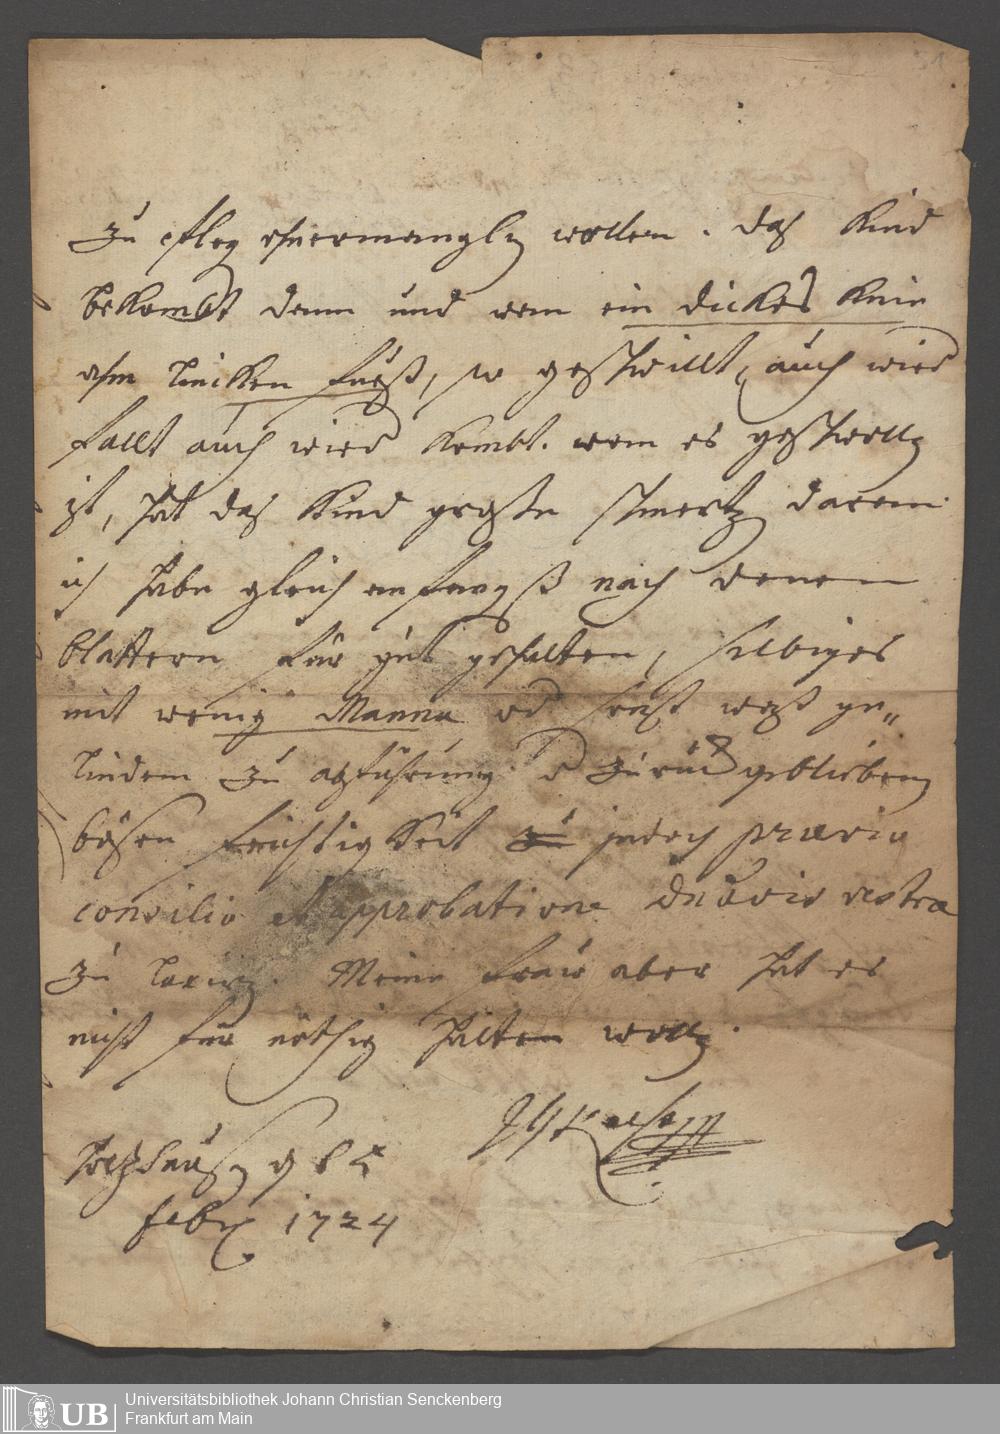 zu pfleg ohnermanglen wollen. daß Kind
bekombt dann und wan ein dickes Knie
ahm lincken fueß, so geschwillt, auch wied
fallt auch wied kombt. wan es geschwollen
ist, hat daß Kind große schmertzen daran
ich habe gleich anfangß nach denen
blattern für gut gehalten, selbiges
mit wenig Manna od sonst waß ge„
lindem zu abführung d zurück gebliebenen
bösen feuchtigkeit zu jedoch prævio
consilio et approbatione vestra
zu laxiren. Meine fraw aber hat es
nicht für nöthig halten wollen.
Holzhausen d
febr 1724
Universitätsbibliothek Johann Christian Senckenberg
UB
Frankfurt am Main